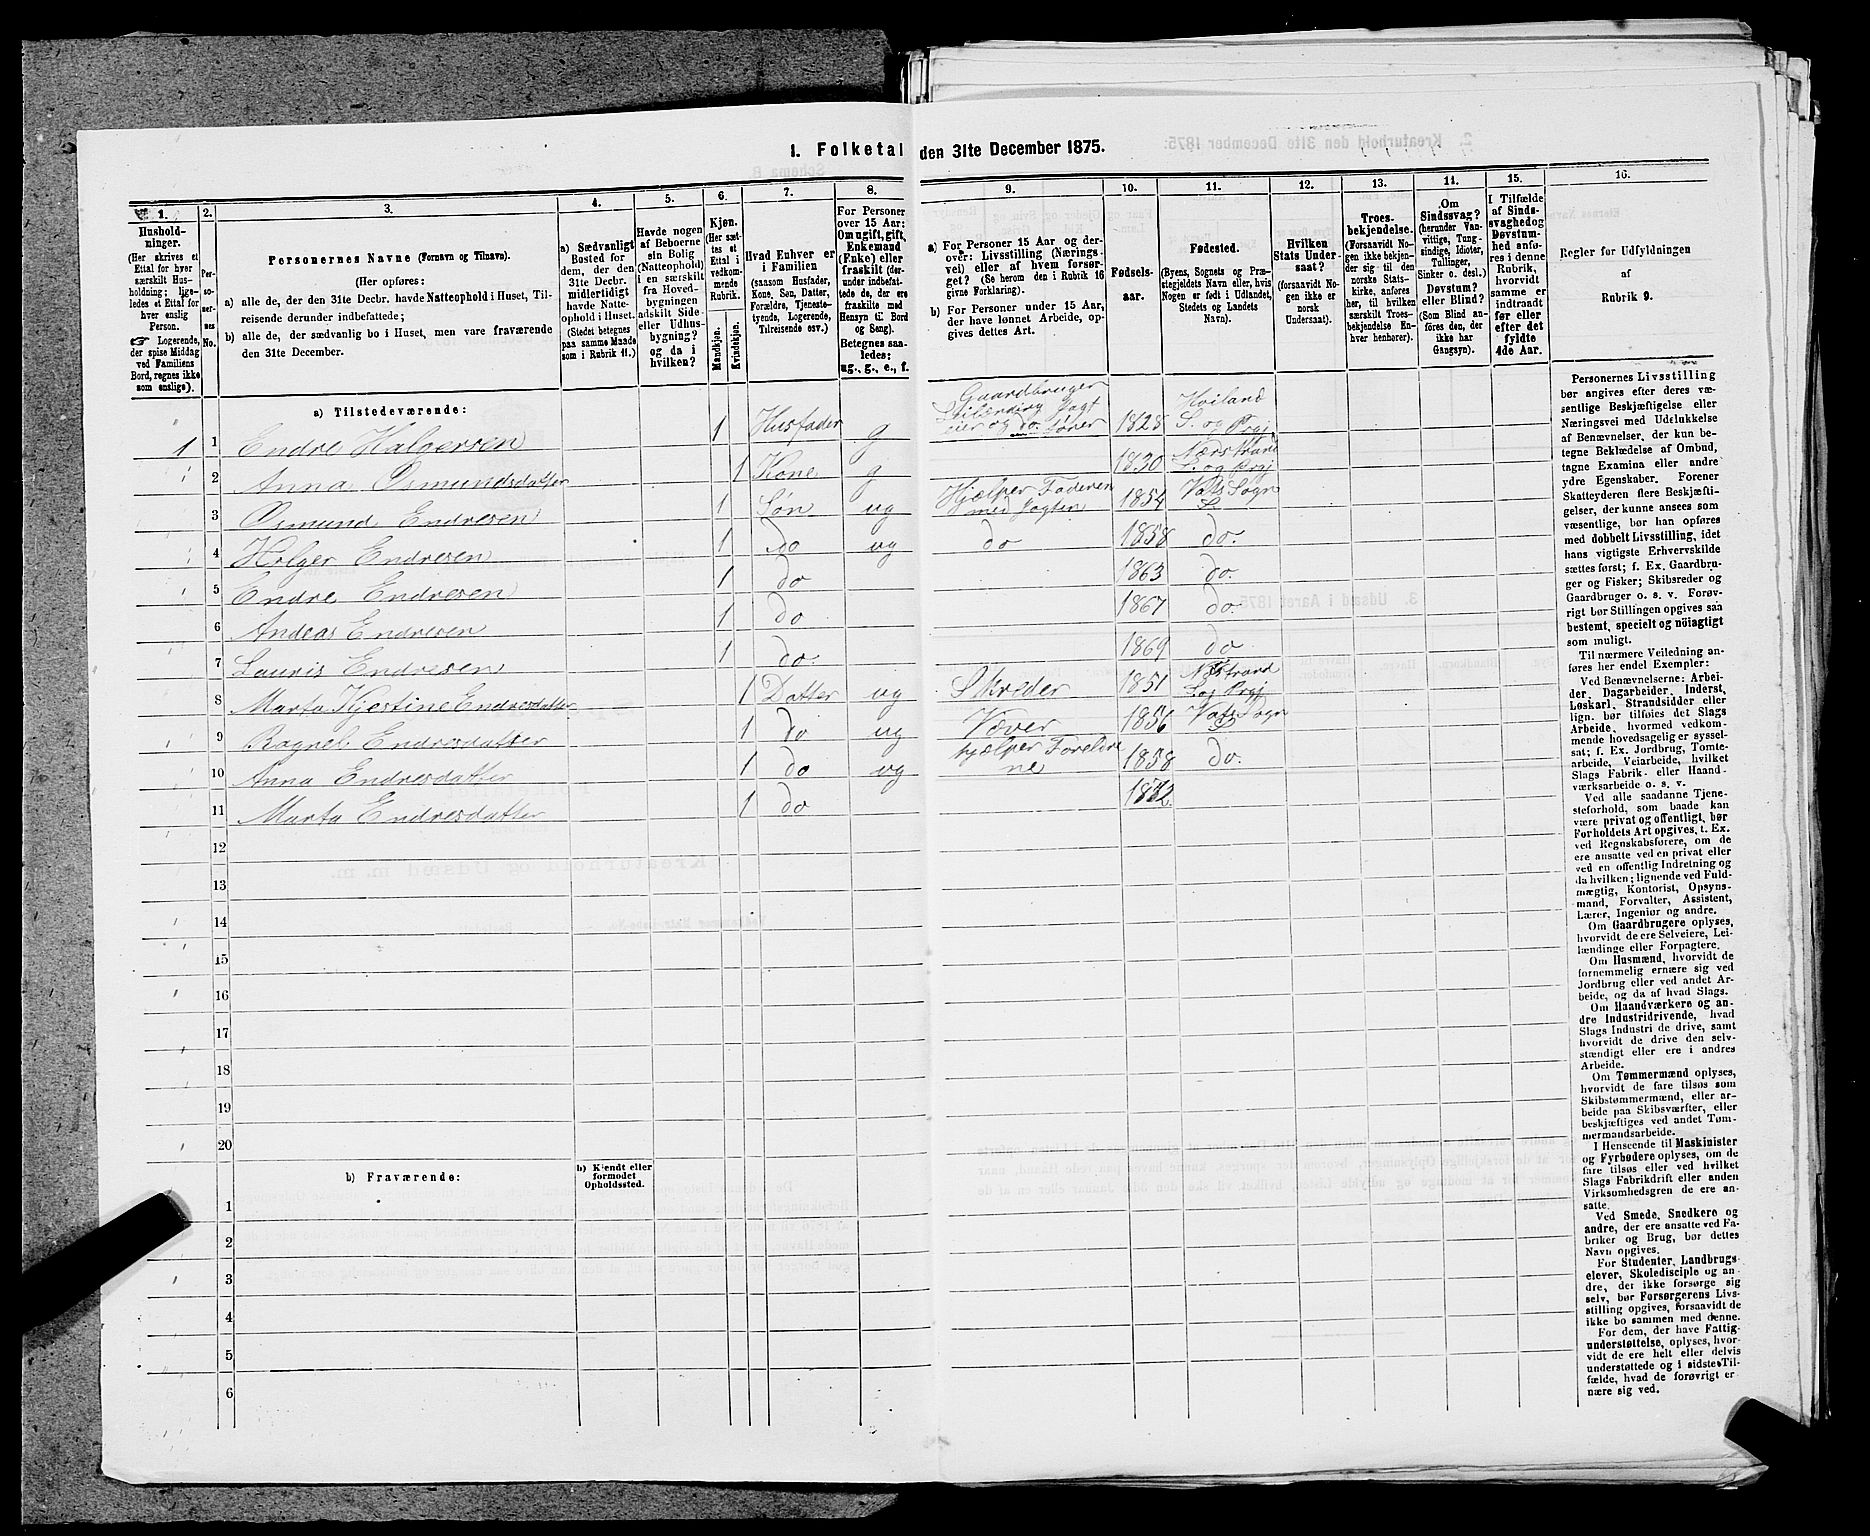 1. Folketal den 31te December 1875.
1.
Hushold-
ninger.
(Her skrives et
Ettal for hver
særskilt Hus-
holdning; lige-
ledes et Ettal for
hver enslig
Person.
☞ Logerende,
der spise Middag
ved Familiens
Bord, regnes ikke
som enslige).
2.
Per-
so-
ner-
nes
No.
3.
Personernes Navne (Fornavn og Tilnavn).
(Her opføres:
a) alle de, der den 31te Decbr. havde Natteophold i Huset, Til-
reisende derunder indbefattede;
b) alle de, der sædvanlig bo i Huset, men vare fraværende
den 31te December.
4.
a) Sædvanligt
Bosted for
dem, der den
31te Decbr.
midlertidigt
havde Natte-
ophold i Huset.
(Stedet betegnes
paa samme Maade
som i Rubrik 11.)
5.
Havde nogen
af Beboerne
sin Bolig
(Natteophold)
i en særskilt
fra Hoved-
bygningen
adskilt Side-
eller Udhus-
bygning?
og da i
hvilken?
6.
Kjøn.
(Her sæt-
tes et
Ettal i
vedkom-
mende
Rubrik.
Mandkjøn.
Kvindekjøn.
7.
Hvad Enhver er
i Familien
(saasom Husfader,
Kone, Søn, Datter,
Forældre, Tjeneste-
tyende, Logerende,
Tilreisende osv.)
8.
For Personer
over 15 Aar:
Om ugift, gift,
Enkemand
(Enke) eller
fraskilt (der-
under indbefat-
tede de, der ere
fraskilte med
Hensyn til Bord
og Seng).
Betegnes saa-
ledes:
ug., g., e., f.
9.
a) For Personer 15 Aar og der-
over: Livsstilling (Nærings-
vei) eller af hvem forsør-
get? (Se herom den i Rubrik 16
givne Forklaring).
b) For Personer under 15 Aar,
der have lønnet Arbeide, op-
gives dettes Art.
10.
Fødsels-
aar.
11.
Fødested.
(Byens, Sognets og Præ-
stegjeldets Navn eller, hvis
Nogen er født i Udlandet,
Stedets og Landets
Navn).
12.
Hvilken
Stats Under-
saat?
(forsaavidt No-
gen ikke er
norsk
Undersaat).
13.
Troes-
bekjendelse.
(Forsaavidt No-
gen ikke bekjen-
der sig til den
norske Stats-
kirke, anføres
her, til hvilken
særskilt Troes-
bekjendelse En-
hver henhører).
14.
Om
Sindssvag?
(herunder Van-
vittige, Tung-
sindige, Idioter,
Tullinger,
Sinker o. desl.)
Døvstum?
eller Blind?
(Som Blind an-
føres den, der
ikke har
Gangsyn).
15.
I Tilfælde
af Sinds-
svaghed og
Døvstum-
hed anfø-
res i denne
Rubrik,
hvorvidt
samme er
indtraadt
før eller
efter det
fyldte
4de Aar.
16.
Regler for Udfyldningen
af
Rubrik 9.
a) Tilstedeværende:
1 1 Endre Halgersen 1 Husfader g Gaardbruger Jagt eier og 1828 S. og Prgj
2 Anna Osmundsdatter 1 Kone g 1830 Nærstrand S. og Prgj
3 Osmund Endresen 1 Søn ug Hjælper Faderen med Jagten 1854 Vats Sogn
4 Holger Endresen 1 do ug do 1858 do.
5 Endre Endresen 1 do 1863 do.
6 Andeas Endresen 1 do 1867 do.
7 Lauris Endresen 1 do. 1869 do
8 Marta Kjestine Endresdatter 1 Datter ug Skreder 1851 Nærstrand S og Prgj
9 Ragnel Endresdatter 1 do ug Væver 1856 Vats Sogn
10 Anna Endresdatter 1 do ug hjælper Foreldrene 1858 do.
11 Marta Endresdatter 1 do
12
13
14
15
16
17
18
19
20
b) Fraværende:
b) Kjendt eller
formodet
Opholdssted.
1
2
3
4
5
6
Personernes Livsstilling
bør angives efter deres væ-
sentlige Beskjæftigelse eller
Næringsvei med Udelukkelse
af Benævnelser, der kun be-
tegne Beklædelse af Ombud,
tagne Examina eller andre
ydre Egenskaber. Forener
Skatteyderen flere Beskjæfti-
gelser, der kunne ansees som
væsentlige, bør han opføres
med dobbelt Livsstilling, idet
hans vigtigste Erhvervskilde
sættes først; f. Ex. Gaardbru-
ger og Fisker; Skibsreder og
Gaardbruger o. s. v. Forøv-
rigt bør Stillingen opgives saa
bestemt, specielt og nöiagtigt
som muligt.
Til nærmere Veiledning an-
føres her endel Exempler:
Ved Benævnelserne: Arbei-
der, Dagarbeider, Inderst,
Løskarl, Strandsidder eller
lign. bør tilføies det Slags
Arbeide, hvormed vedkom-
mende hovedsagelig er syssel-
sat; f. Ex. Jordbrug, Tomte-
arbeide, Veiarbeide, hvilket
Slags Fabrik- eller Haand-
værksarbeide o. s. v.
Ved alle saadanne Tjene-
steforhold, som baade kan
være privat og offentligt, bør
Forholdets Art opgives, t. Ex.
ved Regnskabsførere, om de
ere ansatte ved en privat eller
ved en offentlig Indretning og
da hvilken; lignende ved Fuld-
mægtig, Kontorist, Opsyns-
mand, Forvalter, Assistent,
Lærer, Ingeniør og andre.
Om Gaardbrugere oplyses,
hvorvidt de ere Selveiere, Lei-
lændinge eller Forpagtere.
Om Husmænd, hvorvidt de
fornemmelig ernære sig ved
Jordbrug eller ved andet Ar-
beide, og da af hvad Slags.
Om Haandværkere og an-
dre Industridrivende, hvad
Slags Industri de drive, samt
hvorvidt de drive den selv-
stændigt eller ere i andres
Arbeide.
Om Tømmermænd oplyses,
hvorvidt de fare tilsøs som
Skibstømmermænd, eller ar-
beide paa Skibsværfter, eller
beskjæftiges ved andet Tøm-
mermandsarbeide.
I Henseende til Maskinister
og Fyrbødere oplyses, om de
fare tilsøs eller ved hvilket
Slags Fabrikdrift eller anden
Virksomhedsgren de ere an-
satte.
Ved Smede, Snedkere og
andre, der ere ansatte ved Fa-
briker og Brug, bør dettes
Navn opgives.
For Studenter, Landbrugs-
elever, Skoledisciple og an-
dre, der ikke forsørge sig
selv, bør Forsørgerens Livs-
stilling opgives, forsaavidt de
ikke bo sammen med denne.
For dem, der have Fattig-
understøttelse, oplyses, hvor-
vidt de ere helt eller delvis
understøttede og i sidste Til-
fælde, hvad de forøvrigt er-
nære sig ved.